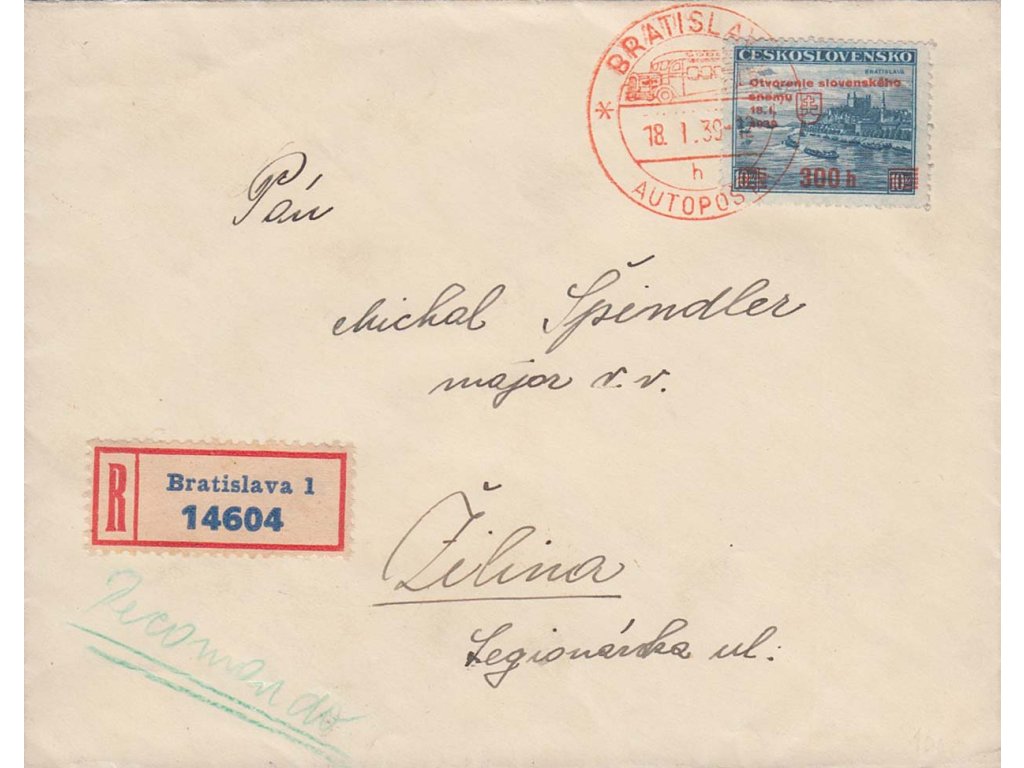 BRATISLAV
18. I. 39-12
h
AUTOPOŠT
ČESKOSLOVENSKO
BRATISLAVA
Otvorenie slovenského
snemu
18.I.
1939
300 h
Pán
Michal Špindler
májor v. v.
R
Bratislava 1
14604
Žilina
Legionárska ul.
Recomando